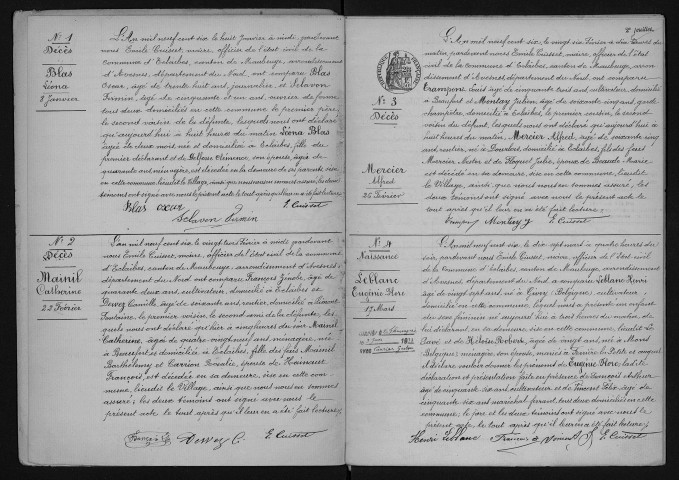 N° 1
Décès
Blas
Léona
8 Janvier
L'An mil neuf cent six le huit Janvier à midi, pardevant
nous Emile Cuisset, maire, officier de l'état civil de la
commune d'Eclaibes, canton de Maubeuge, arrondissement
d'Avesnes, département du Nord, ont comparu Blas
Oscar, âgé de trente huit ans, journalier, et
Firmin, âgé de cinquante
tous deux domiciliés en cette commune, le premier père,
le second voisin de la défunte, lesquels nous ont déclaré
qu'aujourd'hui à huit heures du matin Léona Blas
âgée de deux mois, née et domiciliée à Eclaibes, fille du
premier déclarant et de Clémence, son épouse, âgée de
quarante ans, ménagère, est décédée en la demeure de ses parents sise
en cette commune, lieudit le Village, ainsi que nous nous en sommes assuré, les deux
témoins ont signé avec nous le présent acte le tout après qu'il leur en a été fait lecture
Blas Oscar
Firmin
E. Cuisset
N° 2
Décès
Mainil
Catherine
22 Février
L'an mil neuf cent six le vingt trois Février à midi pardevant
nous Emile Cuisset, maire, officier de l'état civil de la commune
d'Eclaibes, canton de Maubeuge, arrondissement d'Avesnes
département du Nord ont comparu François âgé de
quarante deux ans, cultivateur, domicilié à Eclaibes et
Dervez Camille, âgé de soixante ans, rentier, domicilié à Limont
Fontaine, le premier voisin, le second ami de la défunte, les
quels nous ont déclaré que hier à cinq heures du soir Mainil
Catherine, âgée de quatre-vingt neuf ans, ménagère, née
à domiciliée à Eclaibes, fille des feus Mainil
Barthélemy et Carrion Rosalie, épouse de Hainaut
François, est décédée en sa demeure, sise en cette com-
mune, lieudit le Village, ainsi que nous nous en sommes
assuré; les deux témoins ont signé avec nous le
présent acte le tout après qu'il leur en a été fait lecture
Dervez C.
E. Cuisset
2e feuillet
N° 3
Décès
Mercier
Alfred
26 Février
L'An mil neuf cent six, le vingt six Février à dix heures du
matin, pardevant nous Emile Cuisset, maire, officier de l'état
civil de la commune d'Eclaibes, canton de Maubeuge, arron-
dissement d'Avesnes, département du Nord, ont comparu
Trampont Louis âgé de cinquante trois ans, cultivateur, domicilié
à et Julien, âgé de soixante cinq ans, garde
champêtre, domicilié à Eclaibes, le premier cousin, le second
voisin du défunt, lesquels nous ont déclaré que aujourd'hui à
huit heures du matin, Mercier Alfred, âgé de soixante cinq
ans, rentier, né à domicilié à Eclaibes, fils des feus
Mercier et Julie, époux de Marie
est décédé en sa demeure, sise en cette commune, lieudit
le Village, ainsi que nous nous en sommes assuré, les
deux témoins ont signé avec nous le présent acte
le tout après qu'il leur en a été fait lecture
E. Cuisset
N° 4
Naissance
Leblanc
Eugénie Flore
17 Mars
L'An mil neuf cent six, le dix sept mars à quatre heures du
soir, pardevant nous Emile Cuisset, maire, officier de l'état civil de
la Commune d'Eclaibes, canton de Maubeuge, arrondissement
d'Avesnes, département du Nord, a comparu Leblanc Henri
âgé de vingt sept ans, né à Givry (Belgique), cultivateur,
domicilié en cette commune, lequel nous a présenté un enfant
du sexe féminin né aujourd'hui à trois heures du matin, de
lui déclarant, en sa demeure, sise en cette commune, lieudit Le
Pavé, et de Héloïse née à Mons
Belgique, ménagère, son épouse, mariés à le Petit et auquel
il déclare vouloir donner les prénoms de Eugénie Flore. La dite
déclaration et présentation faite en présence de François
âgé de cinquante six ans, cultivateur et de
cinquante six ans, maréchal ferrant, tous deux domiciliés en cette
commune, le père et les deux témoins ont signé avec nous le
présent acte, le tout après qu'il leur en a été fait lecture
Henri Leblanc
E. Cuisset